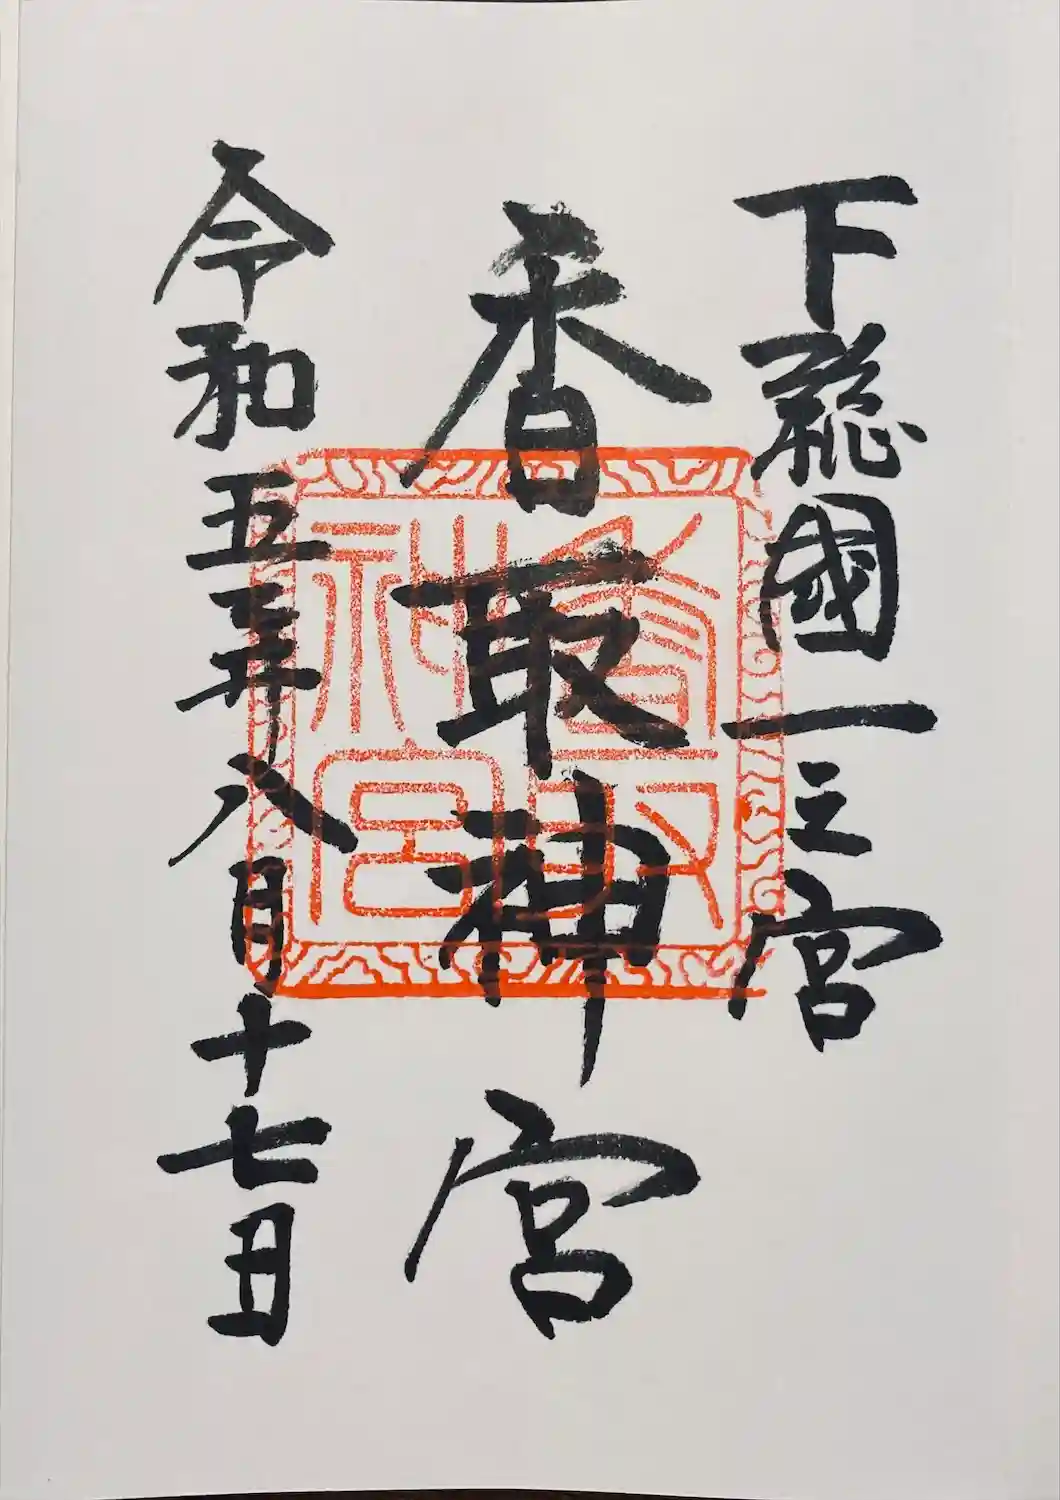 下総國一之宮
香取神宮
香取神宮
令和五年八月十七日